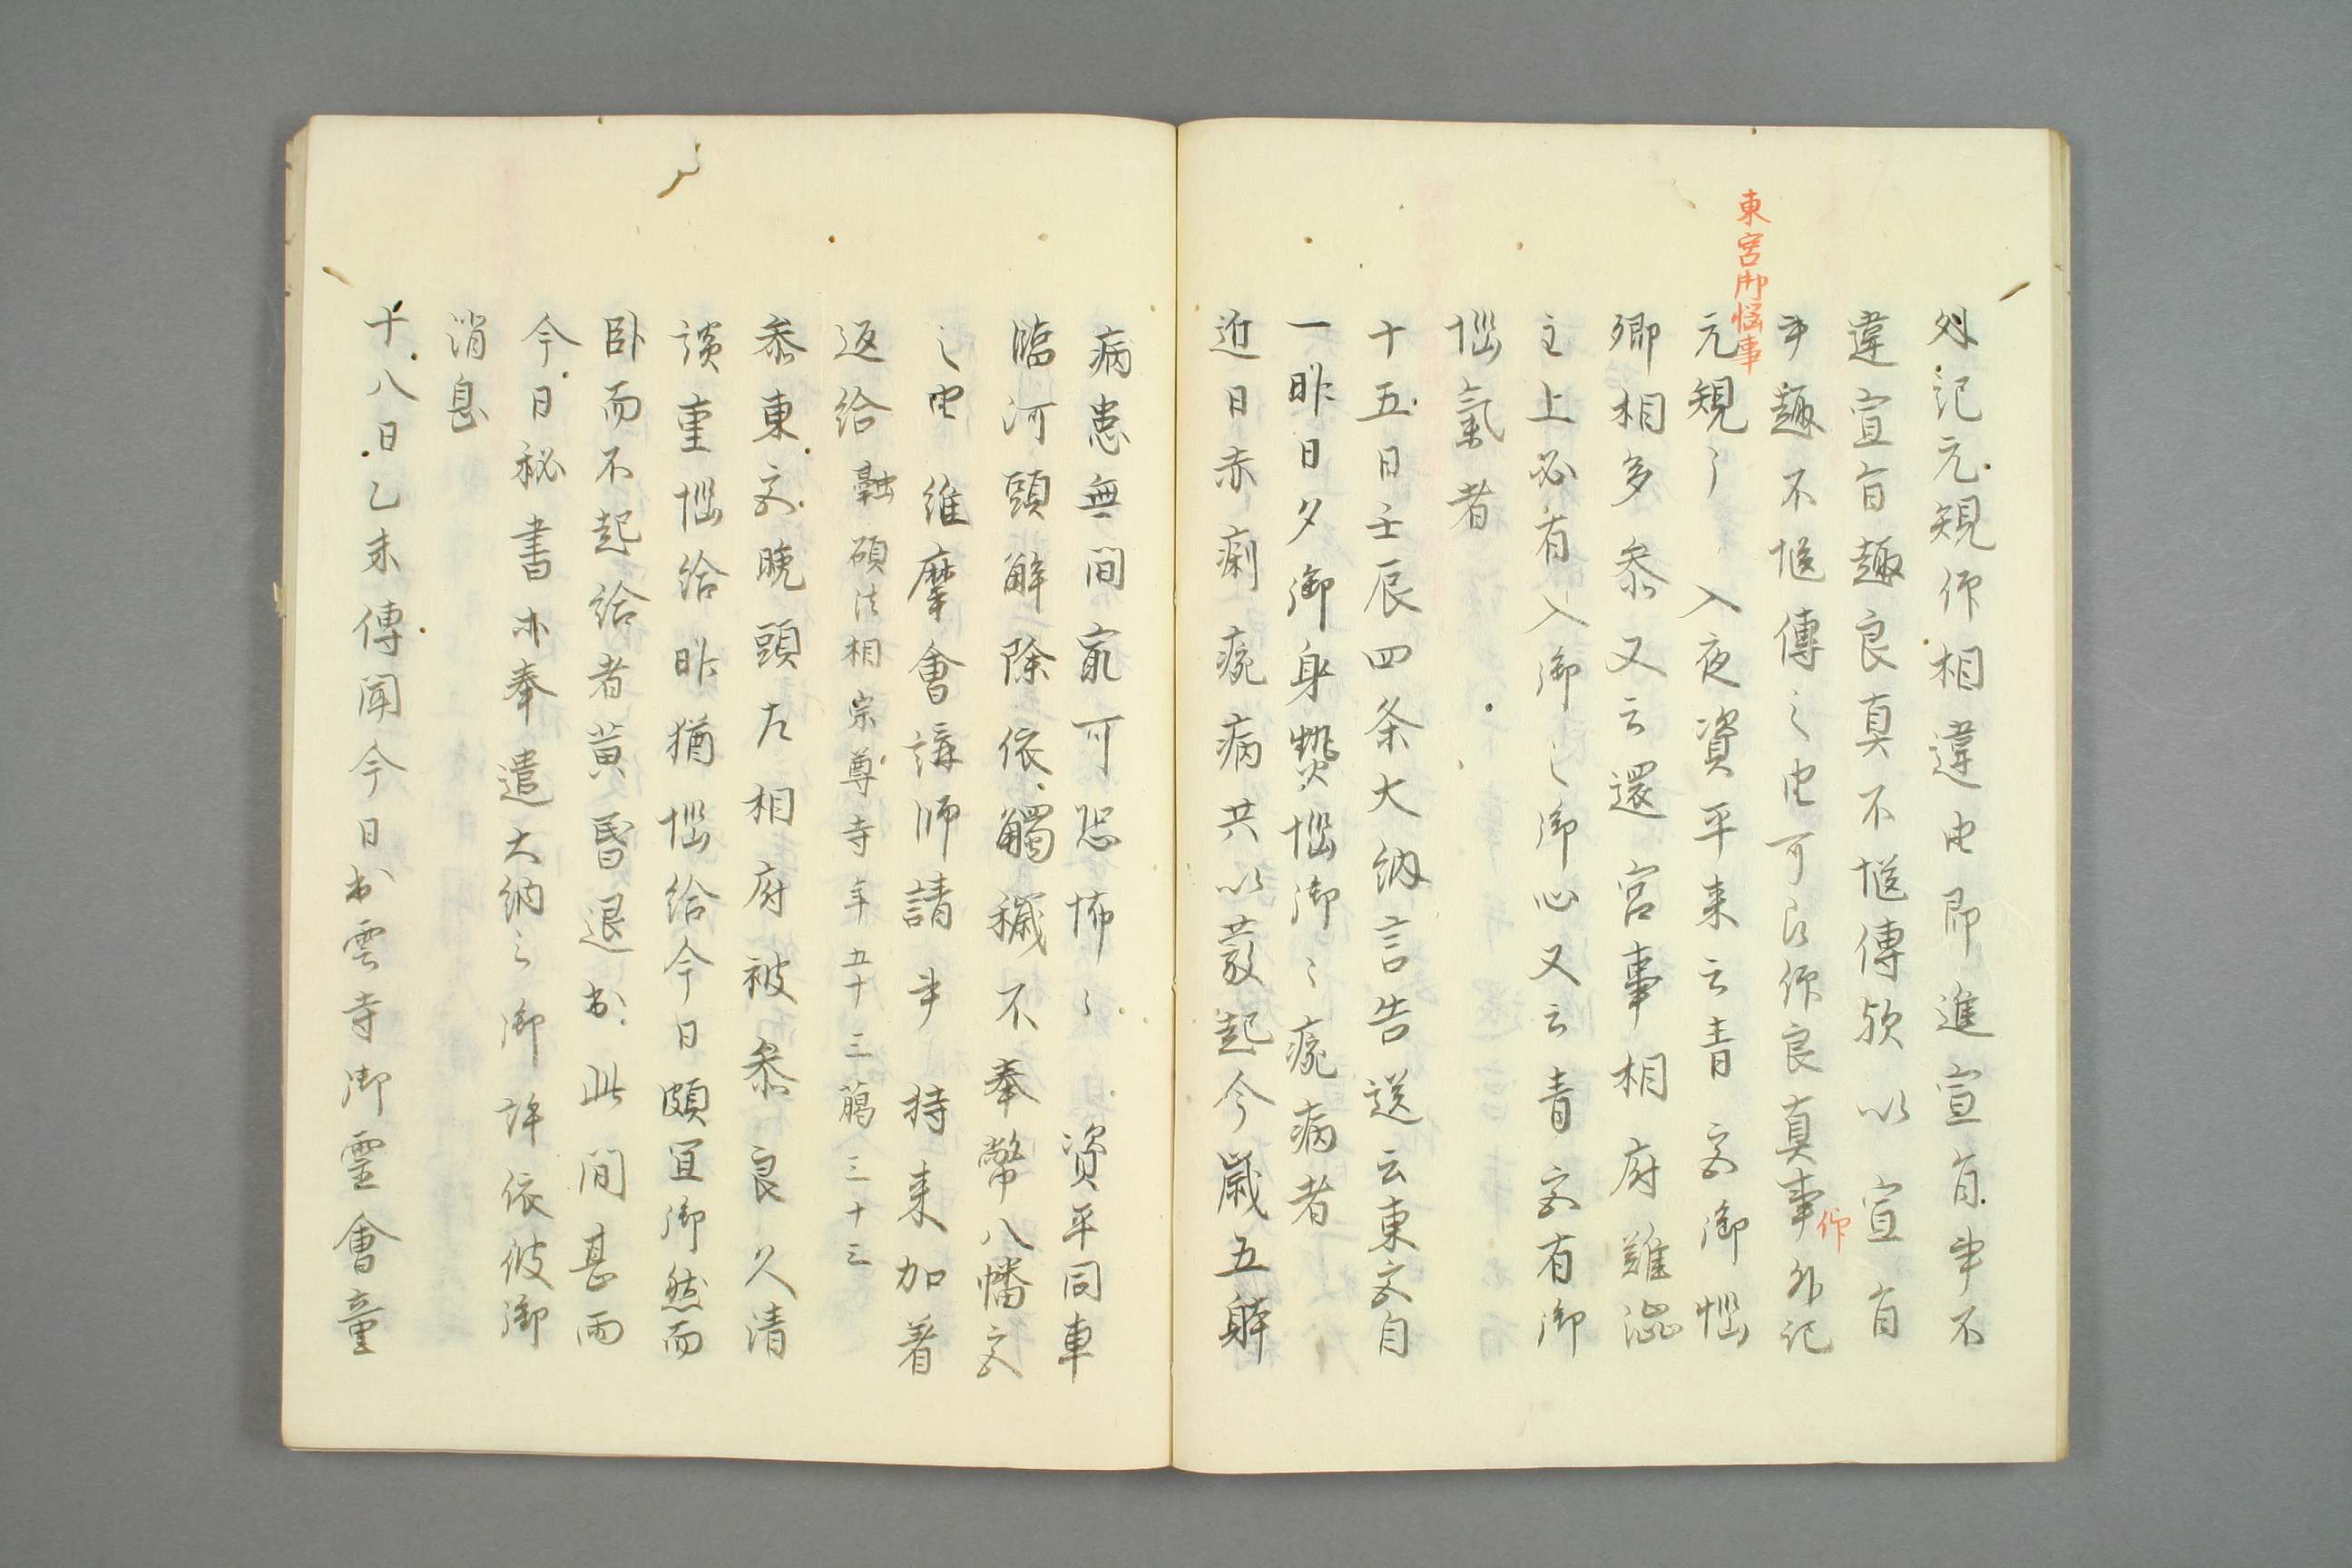 東宮御悩事
外記元規仰相違由即進宣旨申不
違宣旨趣良真不慥傳欤以宣旨
申趣不慥傳之由可召仰良真事外記
仰
元規了入夜資平来云青宮御悩
卿相多参又云還宮事相府難澁
主上必有入御之御心又云青宮有御
悩氣者
十五日壬辰四条大納言告送云東宮自
一昨日夕御身熱悩御々瘧病者
近日赤痢瘧病共以蒙起今歳五躰
病患無間最可恐怖々資平同車
臨河頭解除依觸穢不奉幣八幡宮
之由維摩會講師請申持来加着
返給融碩法相宗尊寺年五十三﨟三十三
参東宮晩頭左相府被参良久清
談重悩給昨猶悩給今日頗宜御然而
臥而不起給者黄昏退出此間甚雨
今日秘書等奉遣大納之御許依彼御
消息
十八日乙未傳聞今日出雲寺御霊會童